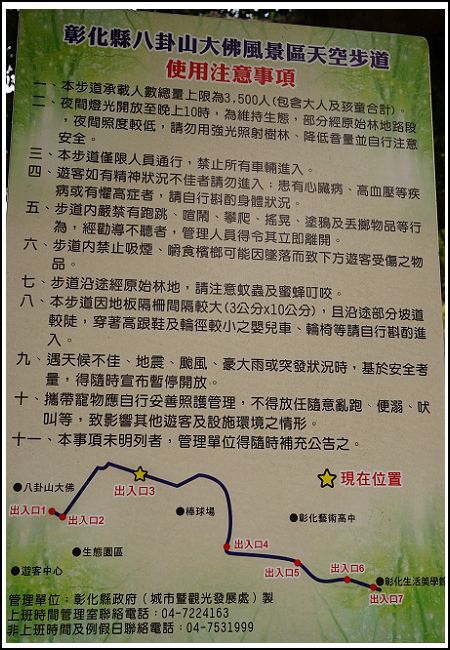 彰化縣八卦山大佛風景區天空步道
使用注意事項
一、本步道承載人數總量上限為3,500人(包含大人及孩童合計)。
二、夜間燈光開放至晚上10時，為維持生態，部分經原始林地路段
，夜間照度較低，請勿用強光照射樹林、降低音量並自行注意
安全。
三、本步道僅限人員通行，禁止所有車輛進入。
四、遊客如有精神狀況不佳者請勿進入；患有心臟病、高血壓等疾
病或有懼高症者，請自行斟酌身體狀況。
五、步道內嚴禁有跑跳、喧鬧、攀爬、搖晃、塗鴉及丟擲物品等行
為，經勸導不聽者，管理人員得令其立即離開。
六、步道內禁止吸煙、嚼食檳榔可能因墜落而致下方遊客受傷之物
品。
七、步道沿途經原始林地，請注意蚊蟲及蜜蜂叮咬。
八、本步道因地板隔柵間隔較大(3公分x10公分)，且沿途部分坡道
較陡，穿著高跟鞋及輪徑較小之嬰兒車、輪椅等請自行斟酌進
入。
九、遇天候不佳、地震、颱風、豪大雨或突發狀況時，基於安全考
量，得隨時宣布暫停開放。
十、攜帶寵物應自行妥善照護管理，不得放任隨意亂跑、便溺、吠
叫等，致影響其他遊客及設施環境之情形。
十一、本事項未明列者，管理單位得隨時補充公告之。
現在位置
八卦山大佛
出入口3
出入口1
出入口2
棒球場
彰化藝術高中
出入口4
生態園區
出入口5
出入口6
遊客中心
彰化生活美學館
出入口7
管理單位：彰化縣政府（城市暨觀光發展處）製
上班時間管理室聯絡電話：04-7224163
非上班時間及例假日聯絡電話：04-7531999